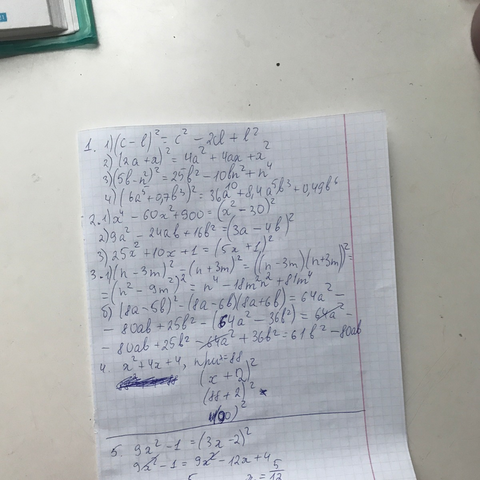 1. 1) (c - l)² = c² - 2cl + l²
2) (2a + x)² = 4a² + 4ax + x²
3) (5b - n²)² = 25b² - 10bn² + n⁴
4) (6a⁵ + 0,7b³)² = 36a¹⁰ + 8,4a⁵b³ + 0,49b⁶
2. 1) x⁴ - 60x² + 900 = (x² - 30)²
2) 9a² - 24ab + 16b² = (3a - 4b)²
3) 25x² + 10x + 1 = (5x + 1)²
3. 1) (n - 3m)² - (n + 3m)² = ((n - 3m)(n + 3m))² =
= (n² - 9m²)² = n⁴ - 18m²n² + 81m⁴
б) (8a - 5b)² - (8a - 6b)(8a + 6b) = 64a² -
- 80ab + 25b² - (64a² - 36b²) = 64a² -
- 80ab + 25b² - 64a² + 36b² = 61b² - 80ab
4. x² + 4x + 4, при = 88
(x + 2)²
(88 + 2)²
(90)²
5 9x² - 1 = (3x - 2)²
9x² - 1 = 9x² - 12x + 4
5